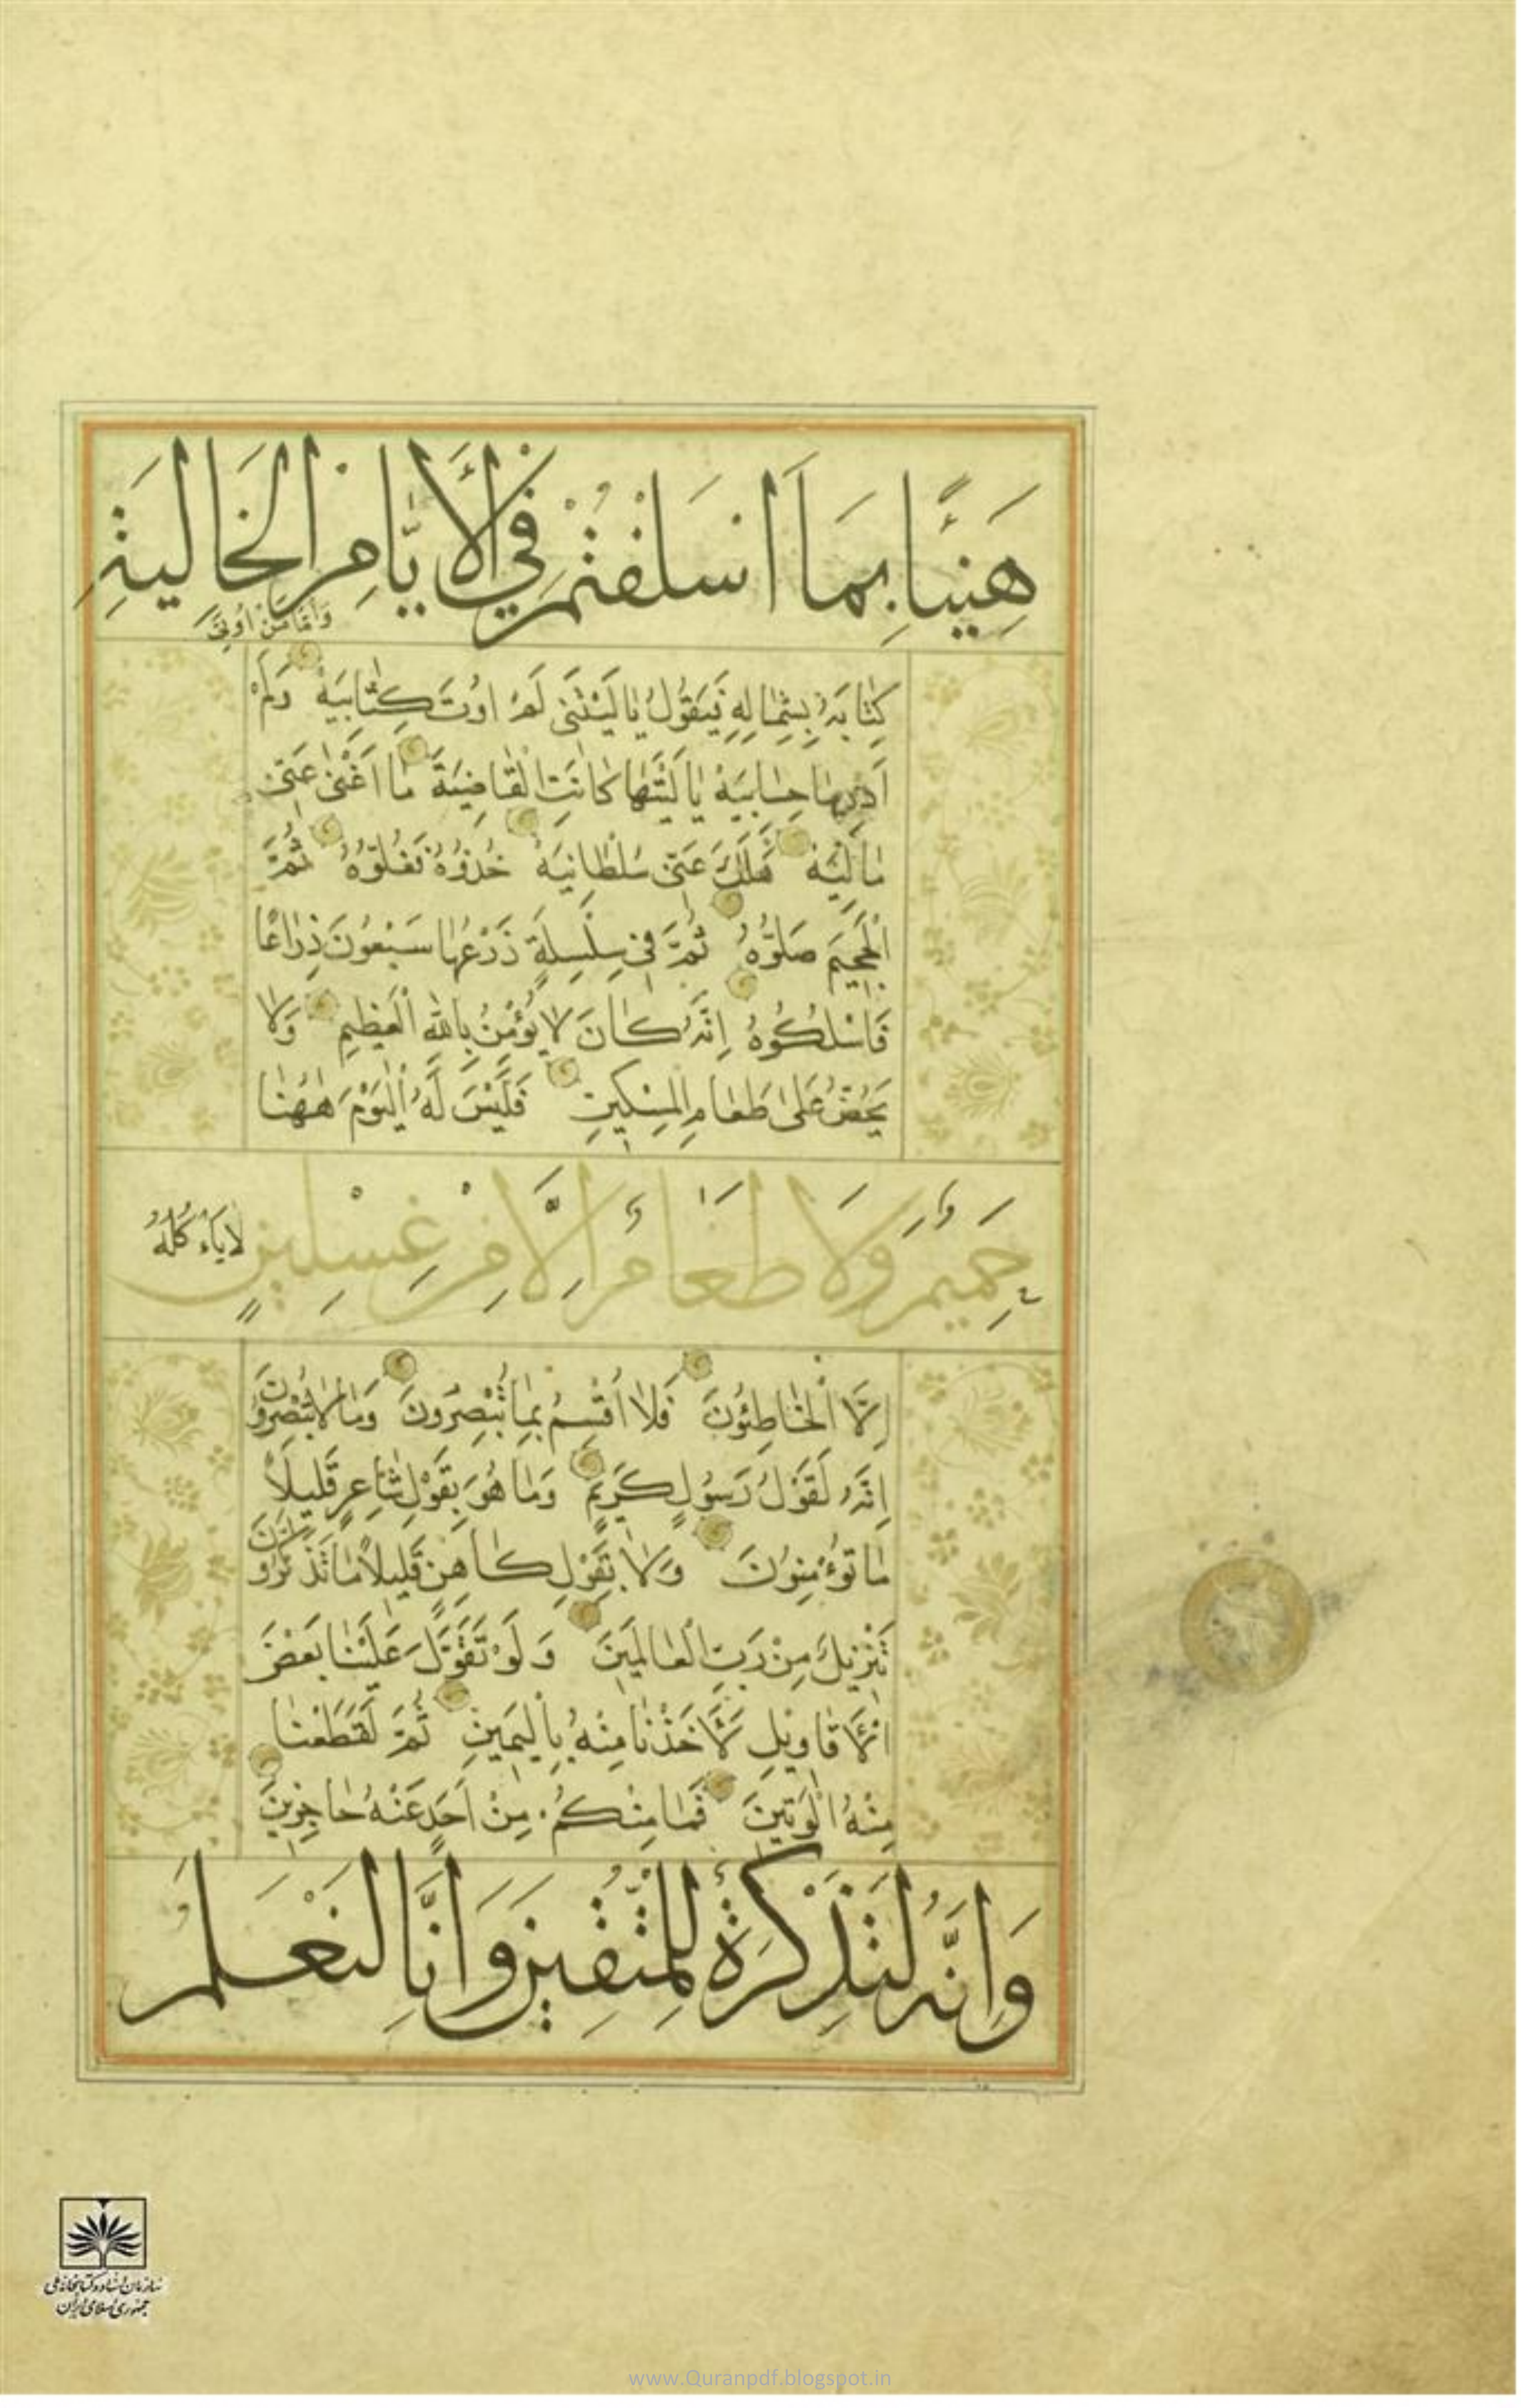 هَنِيئًا بِمَا اَسْلَفْتُمْ فِي الْأَيَّامِ الْخَالِيَةِ
وَاَمَّا مَنْ اُوتِيَ
كِتَابَهُ بِشِمَالِهِ فَيَقُولُ يَا لَيْتَنِي لَمْ اُوتَ كِتَابِيَهْ وَلَمْ
اَدْرِ مَا حِسَابِيَهْ يَا لَيْتَهَا كَانَتِ الْقَاضِيَةَ مَا اَغْنٰى عَنِّي
مَالِيَهْ هَلَكَ عَنِّي سُلْطَانِيَهْ خُذُوهُ فَغُلُّوهُ ثُمَّ
الْجَحِيمَ صَلُّوهُ ثُمَّ فِي سِلْسِلَةٍ ذَرْعُهَا سَبْعُونَ ذِرَاعًا
فَاسْلُكُوهُ اِنَّهُ كَانَ لَا يُؤْمِنُ بِاللّٰهِ الْعَظِيمِ وَلَا
يَحُضُّ عَلٰى طَعَامِ الْمِسْكِينِ فَلَيْسَ لَهُ الْيَوْمَ هٰهُنَا
حَمِيمٌ وَلَا طَعَامٌ اِلَّا مِنْ غِسْلِينٍ لَا يَأْكُلُهُ
اِلَّا الْخَاطِئُونَ فَلَا اُقْسِمُ بِمَا تُبْصِرُونَ وَمَا لَا تُبْصِرُونَ
اِنَّهُ لَقَوْلُ رَسُولٍ كَرِيمٍ وَمَا هُوَ بِقَوْلِ شَاعِرٍ قَلِيلًا
مَا تُؤْمِنُونَ وَلَا بِقَوْلِ كَاهِنٍ قَلِيلًا مَا تَذَكَّرُونَ
تَنْزِيلٌ مِنْ رَبِّ الْعَالَمِينَ وَلَوْ تَقَوَّلَ عَلَيْنَا بَعْضَ
الْأَقَاوِيلِ لَأَخَذْنَا مِنْهُ بِالْيَمِينِ ثُمَّ لَقَطَعْنَا
مِنْهُ الْوَتِينَ فَمَا مِنْكُمْ مِنْ اَحَدٍ عَنْهُ حَاجِزِينَ
وَاِنَّهُ لَتَذْكِرَةٌ لِلْمُتَّقِينَ وَاِنَّا لَنَعْلَمُ
سازمان اسناد و کتابخانه ملی
جمهوری اسلامی ایران
www.Quranpdf.blogspot.in